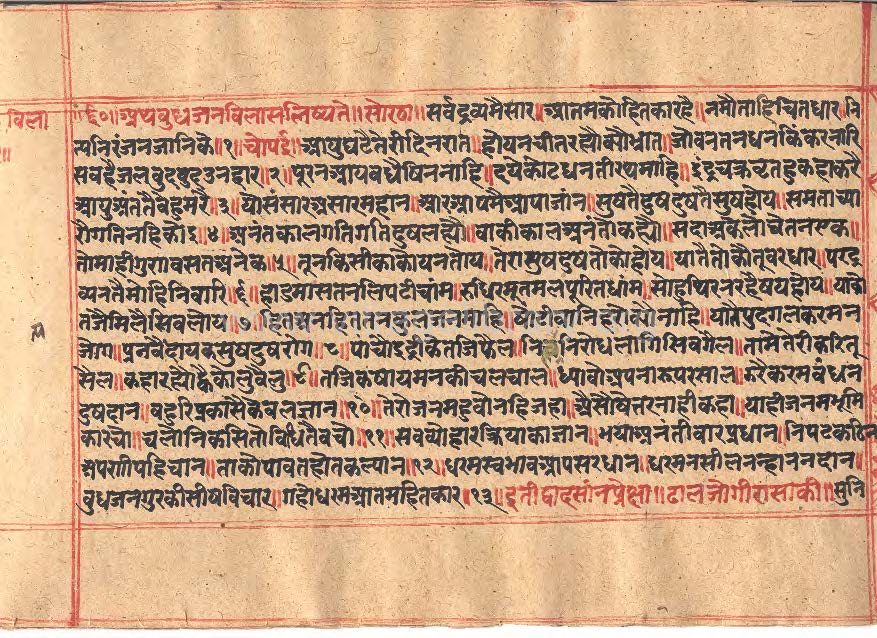 विला ॥६०॥ अथ बुधजनविलास लिष्यते ॥ सोरठा ॥ सर्वद्रव्यमैसार ॥ आतमकौहितकारहै ॥ नमौताहिचितधार ॥ नि
त्यनिरंजनजानिकै ॥१॥ चौपई ॥ आयुघटैतेरीदिनरात ॥ होयनचीतरह्यौक्यौंभ्रात ॥ जोवनतनधनकिंकरनारि
सबहैजलबुदबुदउनहार ॥२॥ पूरनआयबधैषिननाहि ॥ दयेकोटधनतीरथमाहि ॥ इंद्रचक्रपतहुकहाकरै
आयुअंततैवहुमरै ॥३॥ योसंसारअसारमहान ॥ सारआपमैआपाजांन ॥ सुषतैदुषदुषतैसुषहोय ॥ समताच्या
रौंगतिनहिकोइ ॥४॥ अनंतकालगतिगतिदुषलह्यौ ॥ बाकीकालअनंतोकह्यौ ॥ सदाअकेलोचेतनएक ॥
तोमाहीगुणवसतअनेक ॥५॥ तूनकिसीकाकोयनतोय ॥ तेरासुषदुषतोकोहोय ॥ यातैतोकौतूवरधार ॥ परद्र
व्यनतैमोहिनिवारि ॥६॥ हाडमासतनलिपटीचांम ॥ रुधिरमूतमलपूरितधांम ॥ सोहूथिरनरहैषयहोय ॥ याको
तजैमिलैसिवलोय ॥७॥ हितअनहिततनकुलजनमाहि ॥ षोटीवानिहरोक्यौंनाहि ॥ यातैपुदगलकरमन
जोग ॥ प्रनवैदायकसुषदुषरोग ॥८॥ पांचोइंद्रीकेतजिफैल ॥ निरोधलागिसिवगैल ॥ तामेतेरीकरितू
सैल ॥ कहारह्यौह्वैकोलूबैल ॥९॥ तजिकषायमनकीचलचाल ॥ ध्यावोअपनारूपरसाल ॥ करैकरमबंधन
दुषदान ॥ बहुरिप्रकासैकेवलज्ञान ॥१०॥ तेरोजनमहुवोनहिजहा ॥ अैसौषेत्तरनाहीकहा ॥ याहीजनमभूमि
कारचो ॥ चलौनिकसितोविधितैबचौ ॥११॥ सबब्योहारक्रियाकाज्ञान ॥ भयौअनंतीवारप्रधान ॥ निपटकठिन
अपणीपहिचान ॥ ताकौपावतहोतकल्यान ॥१२॥ धरमस्वभावआपसरधान ॥ धरमनसीलनन्हाननदान ॥
बुधजनगुरकीसीषविचार ॥ गहोधरमआतमहितकार ॥१३॥ इतीद्वादसांनप्रेक्षा ॥ ढालजोगीरासाकी ॥ सुनि